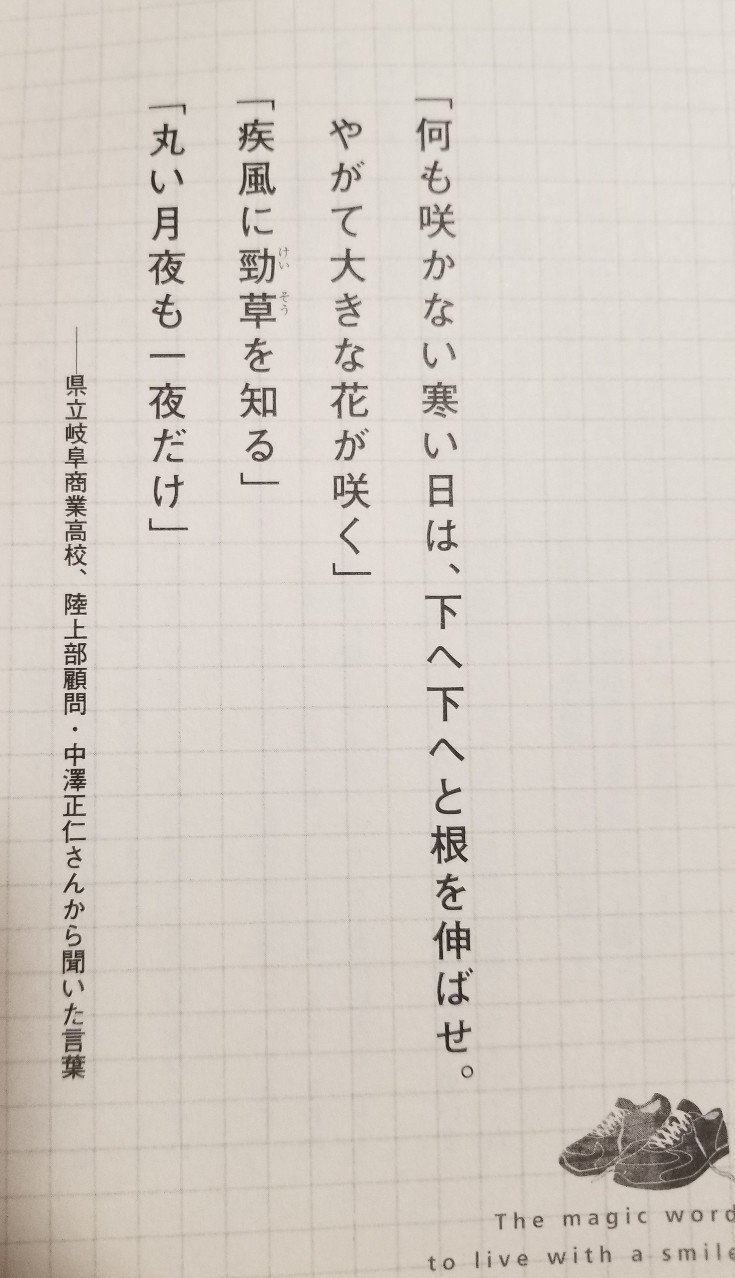 「何も咲かない寒い日は、下へ下へと根を伸ばせ。
やがて大きな花が咲く」
「疾風に勁草を知る」
けい
そう
「丸い月夜も一夜だけ」
──県立岐阜商業高校、陸上部顧問・中澤正仁さんから聞いた言葉
The magic word
to live with a smile